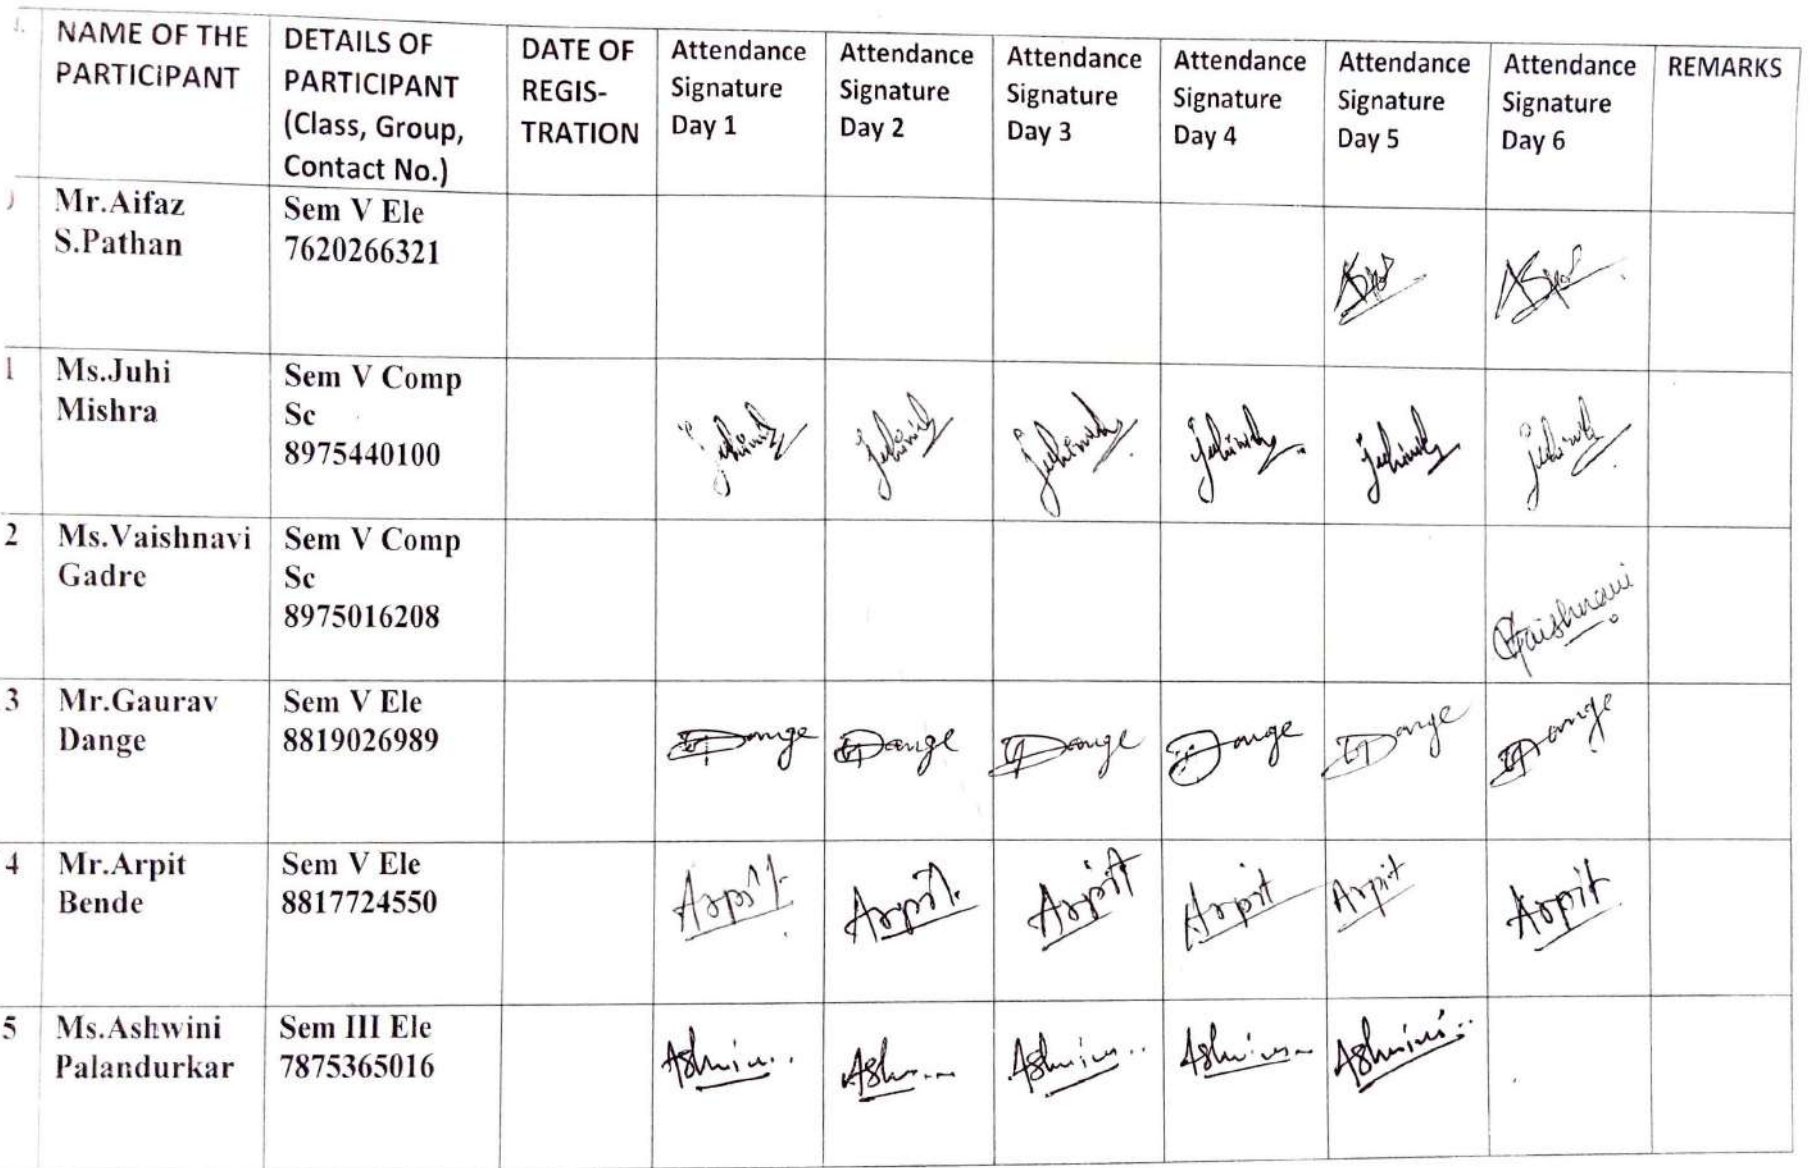 NAME OF THE
PARTICIPANT
DETAILS OF
PARTICIPANT
(Class, Group,
Contact No.)
DATE OF
REGIS-
TRATION
Attendance
Signature
Day 1
Attendance
Signature
Day 2
Attendance
Signature
Day 3
Attendance
Signature
Day 4
Attendance
Signature
Day 5
Attendance
Signature
Day 6
REMARKS
Mr.Aifaz
S.Pathan
Sem V Ele
7620266321
1
Ms.Juhi
Mishra
Sem V Comp
Sc
8975440100
2
Ms.Vaishnavi
Gadre
Sem V Comp
Sc
8975016208
Vaishnavi
3
Mr.Gaurav
Dange
Sem V Ele
8819026989
Dange
Dange
Dange
Dange
Dange
Dange
4
Mr.Arpit
Bende
Sem V Ele
8817724550
Arpit
Arpit
Arpit
Arpit
Arpit
Arpit
5
Ms.Ashwini
Palandurkar
Sem III Ele
7875365016